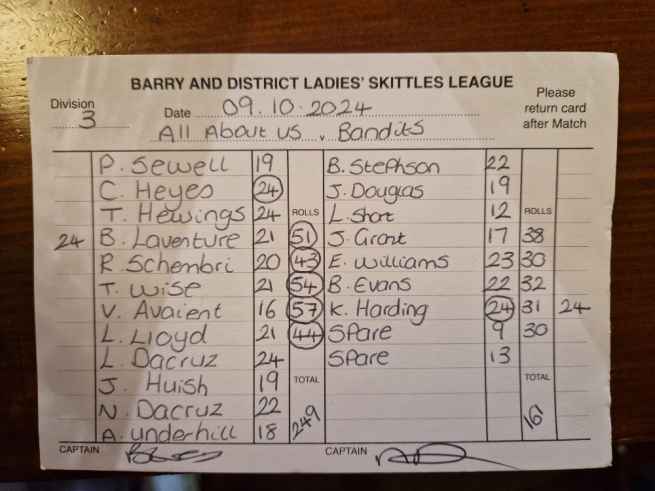 BARRY AND DISTRICT LADIES' SKITTLES LEAGUE
Please
return card
after Match
Division
3
Date 09.10.2024
All About us v Bandits
P. Sewell 19 B. Stephson 22
C. Heyes 24 J. Douglas 19
T. Hewings 24 ROLLS L. Short 12 ROLLS
24 B. Laventure 21 51 J. Grant 17 38
R Schembri 20 43 E. Williams 23 30
T. Wise 21 54 B. Evans 22 32
V. Avaient 16 57 K. Harding 24 31 24
L. Lloyd 21 44 Spare 9 30
L. Dacruz 24 Spare 13
J. Huish 19 TOTAL TOTAL
N. Dacruz 22
A. Underhill 18 249 161
CAPTAIN CAPTAIN